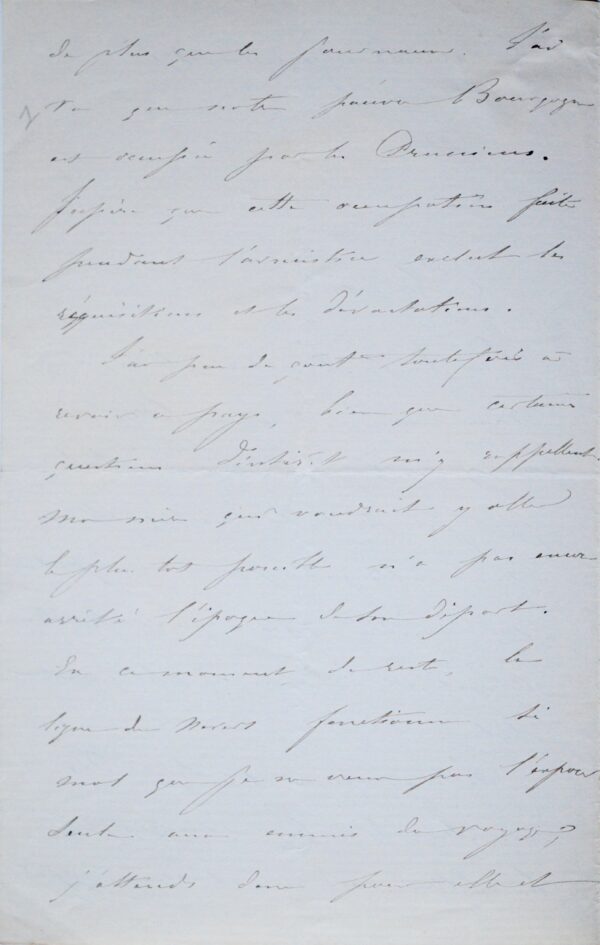 de plus que les journaux. J'ai
vu que notre pauvre Bourgogne
est occupée par les Prussiens.
J'espère que cette occupation faite
pendant l'armistice exclut les
réquisitions et les dévastations.
J'ai peu de goût toutefois à
revoir ce pays, bien que certaines
questions d'intérêt m'y rappellent.
Ma mère qui voudrait y aller
le plus tôt possible n'a pas encore
arrêté l'époque de son départ.
En ce moment, du reste, la
ligne de Nevers fonctionne si
mal que je ne veux pas l'exposer
seule aux ennuis du voyage,
j'attends donc pour elle et